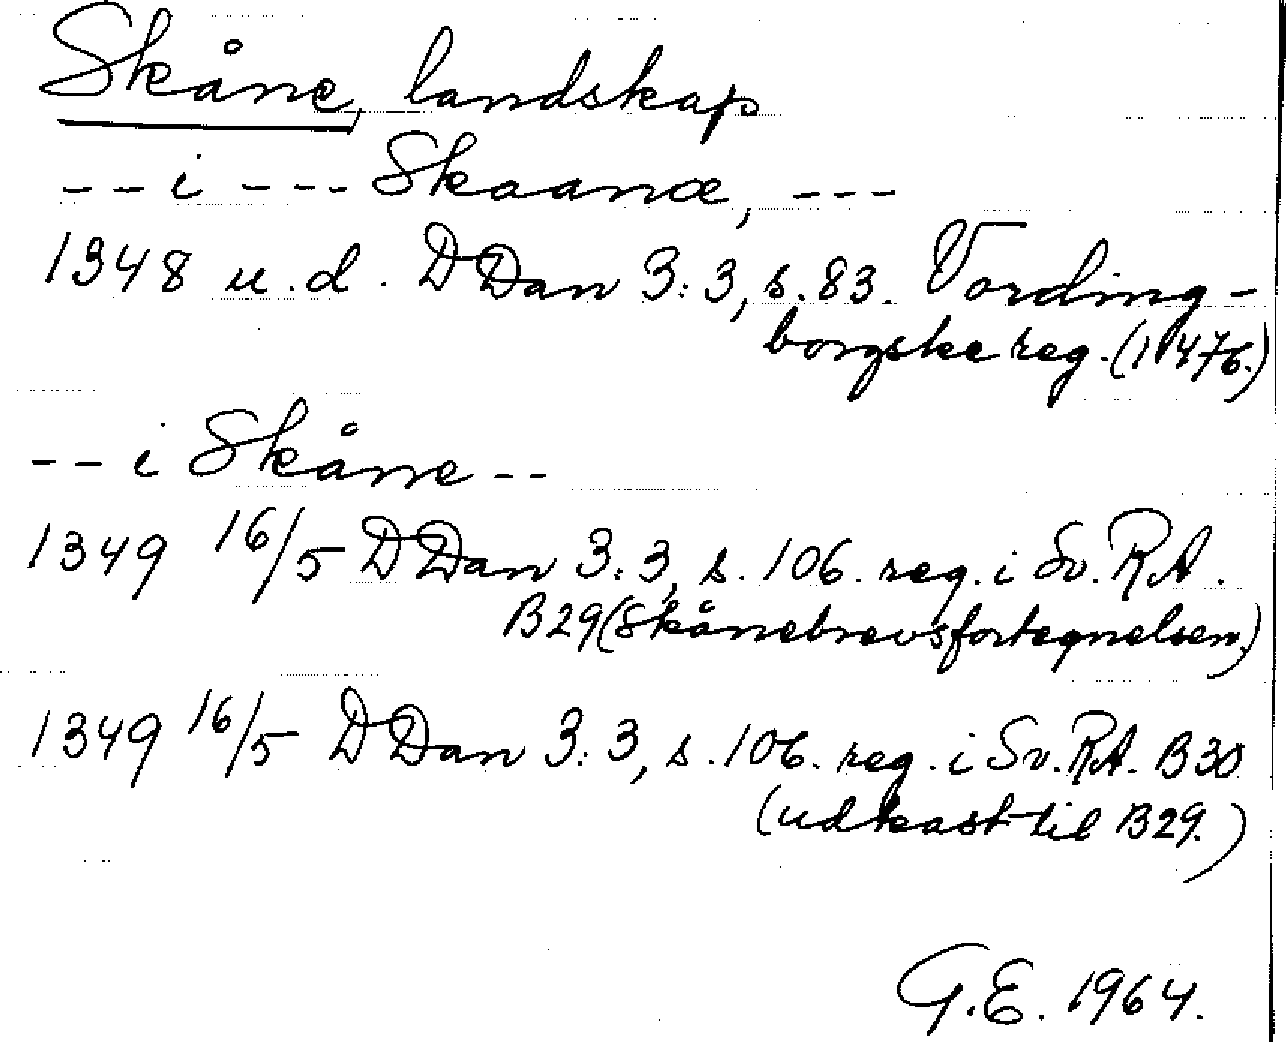 Skåne, landskap
-- i --- Skaanæ, ---
1348 u.d. DDan 3:3, s. 83. Vording-
borgske reg. (1476.)
-- i Skåne --
1349 16/5 DDan 3:3, s. 106. reg. i Sv. RA.
B29 (Skånebrevsfortegnelsen.)
1349 16/5 DDan 3:3, s. 106. reg. i Sv. RA. B30
(udkast til B29.)
G.E. 1964.